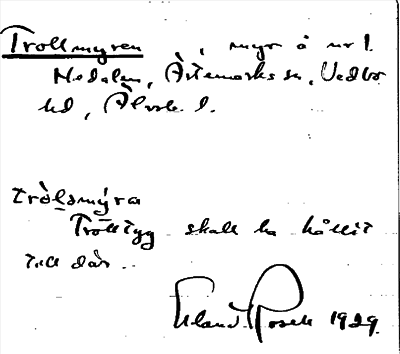 Trollmyren, myr å nr 1.
Nedalen, Ärtemarks sn, Vedbo
hd, Älvsb. l.
tròlsmýra
Trolltyg skall ha hållit
till där.
Erland Rosell 1929.